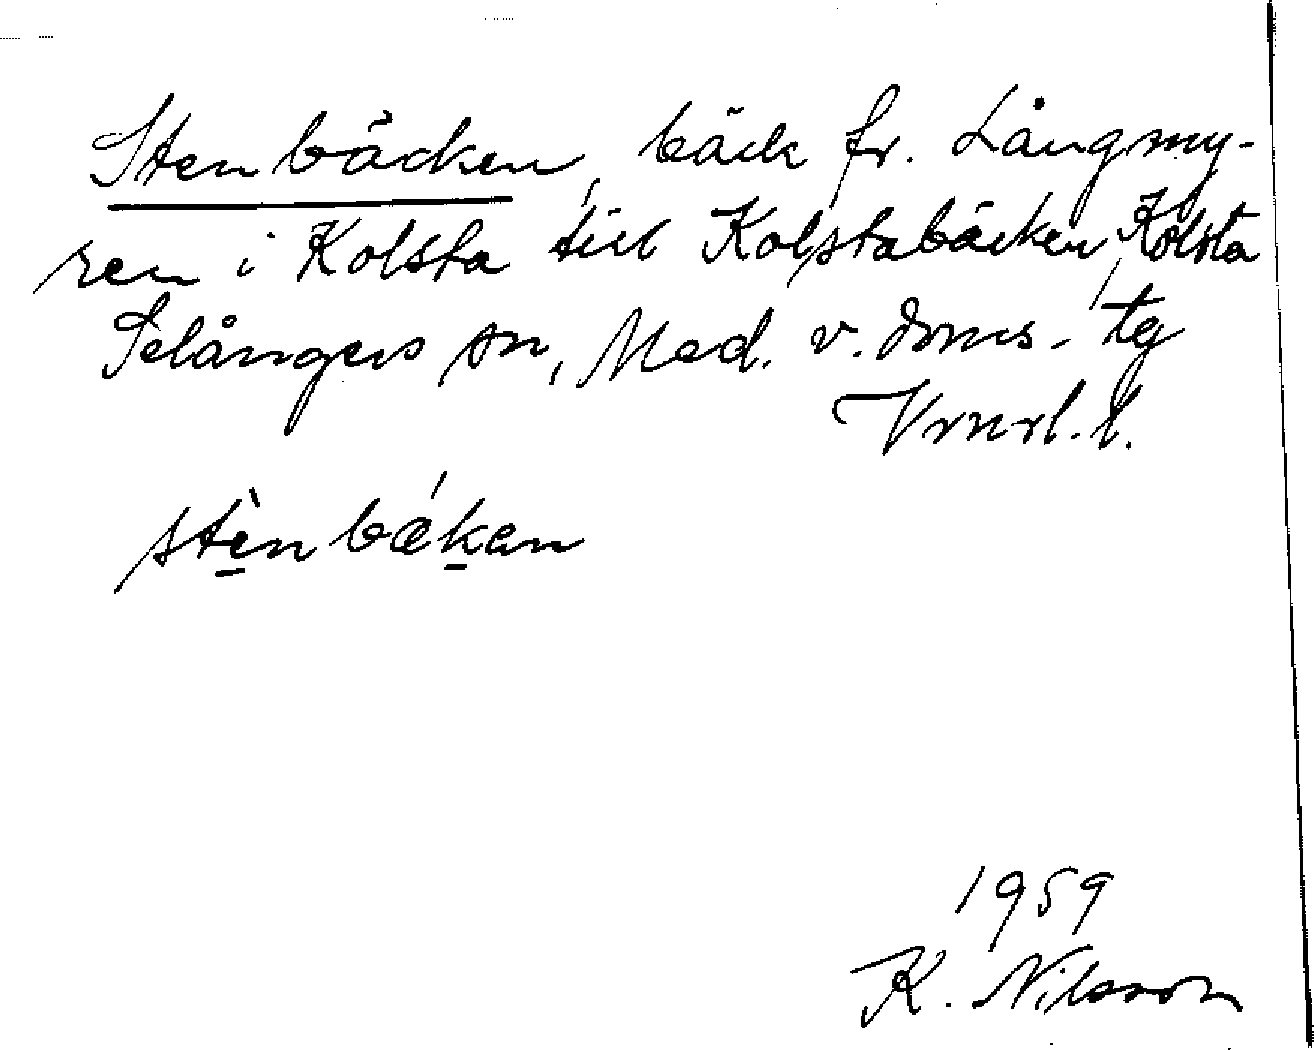 Stenbäcken, bäck fr. Långmy-
ren i Kolsta till Kolstabäcken, Kolsta
Selångers sn, Med. v. doms-tg
Vrnrl. l.
stènbǽkan
1959
K. Nilsson